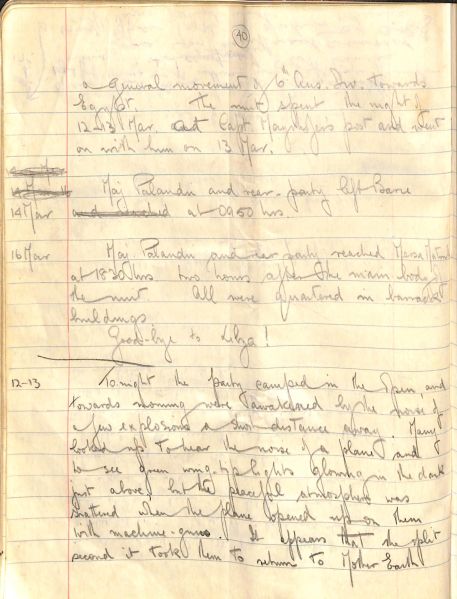 40
a general movement of 6th Aus. Div. towards
Egypt. The unit spent the night of
12-13 Mar. at Capt post and went
on with him on 13 Mar.
14 Mar Maj. Palandri and rear-party left Barce
at 0950 hrs.
16 Mar Maj. Palandri and rear party reached Mersa Matruh
at 1830 hrs two hours after the main body of
the unit. All were quartered in barracks
buildings
Good-bye to Libya!
12-13 To night the party camped in the open and
towards morning were awakened by the noise of
a few explosions a short distance away. Many
looked up to hear the noise of a plane and
to see green wing-tip lights glowing in the dark
just above, but the peaceful atmosphere was
shattered when the plane opened up on them
with machine-guns. It appears that the split
second it took them to return to Mother Earth